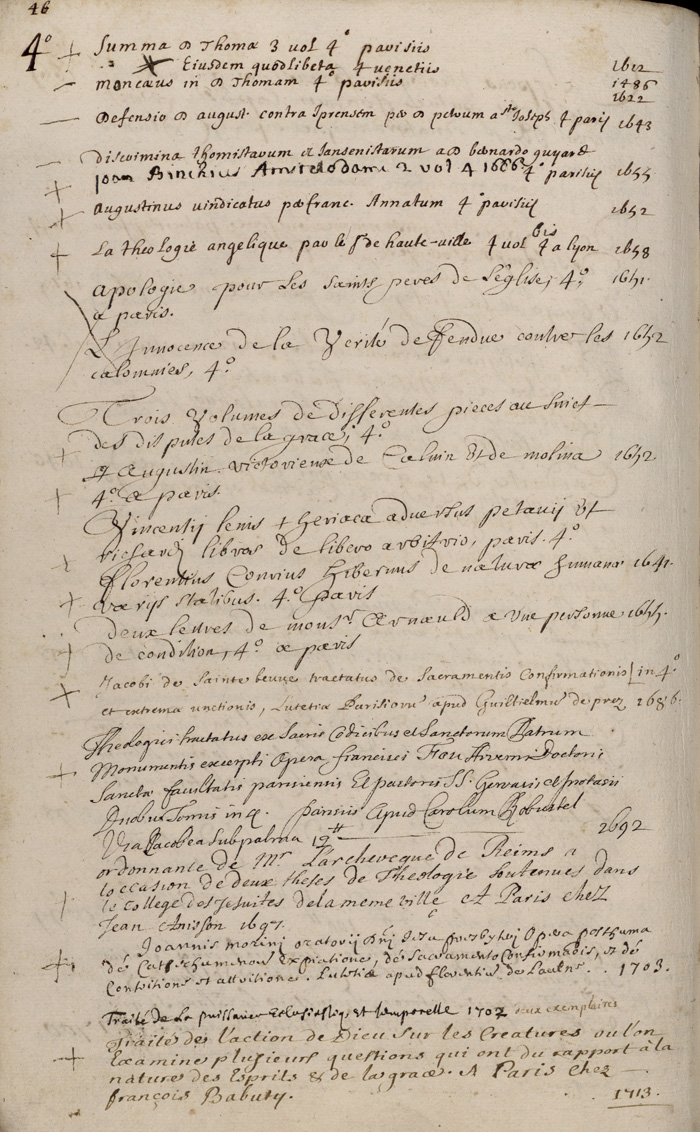 46
4º
Summa D Thomæ 3 vol 4º parisiis
Eiusdem quodlibeta 4 venetiis 1612
moncæus in D Thomam 4º parisiis 1486
1622
Defensio D august. contra Iprensem per D petrum a Sto Joseph 4 parisijs 1643
Discrimina thomistarum et Iansenistarum a D bernardo guyard
4º parisiis 1655
Joan Binchius Amstelodami 2 vol 4 1686
Augustinus vindicatus per franc. Annatum 4º parisiis 1652
La theologie angelique par le Sr de haute-ville 4 vol bis 4 a lyon 1658
apologie pour Les saints peres de L'eglise, 4º 1651.
a paris.
L'Innocence de la Verité deffendue contre les 1652
calomnies, 4º.
Trois Volumes de differentes pieces au suiet
des disputes de la grace, 4º
St Augustin victorieux de Calvin & de molina 1652.
4º a paris.
Vincentij lenis theriaca adversus petavij &
richardi libros de libero arbitrio, paris. 4º
florentius Conrius hibernus de natura humanæ 1641.
varijs statibus. 4º paris
deux lettres de monsr Arnauld a une personne 1655.
de condition, 4º a paris
Jacobi de Sainte beuve tractatus de Sacramentis Confirmationis in 4º
et extrema unctionis, Lutetiæ Parisioru apud Guilielmu de prez 1686.
Theologici tractatus ex Sacris Codicibus et Sanctorum Patrum
Monumentis excerpti Opera francisci Feu Arverni Doctoris
Sanctæ facultatis parisiensis Et pastoris SS. Gervasii et protasii
Duobus Tomis in 4. parisiis Apud Carolum Robustel
Via Jacobea Sub palma 12tt 2692
ordonnance de Mr L'archeveque de Reims a
loccasion de deux theses de Theologie soutenues dans
le college des Jesuites de la meme ville. A Paris chez
Jean Anisson 1697.
Joannis morini oratorij Dni Jesu presbyteri Opera posthuma
de Catechumenorum Expiatione, de Sacramento Confirmationis, et de
Contritione et attritione. Lutetiæ apud florentin de Laulne. 1703.
Traité de La puissance Ecclesiastiq. et temporelle 1707 deux exemplaires
Traité de l'action de Dieu sur les Creatures ou l'on
Examine plusieurs questions qui ont du rapport à la
nature des Esprits & de la grace. A Paris chez
françois Babuty. 1713.